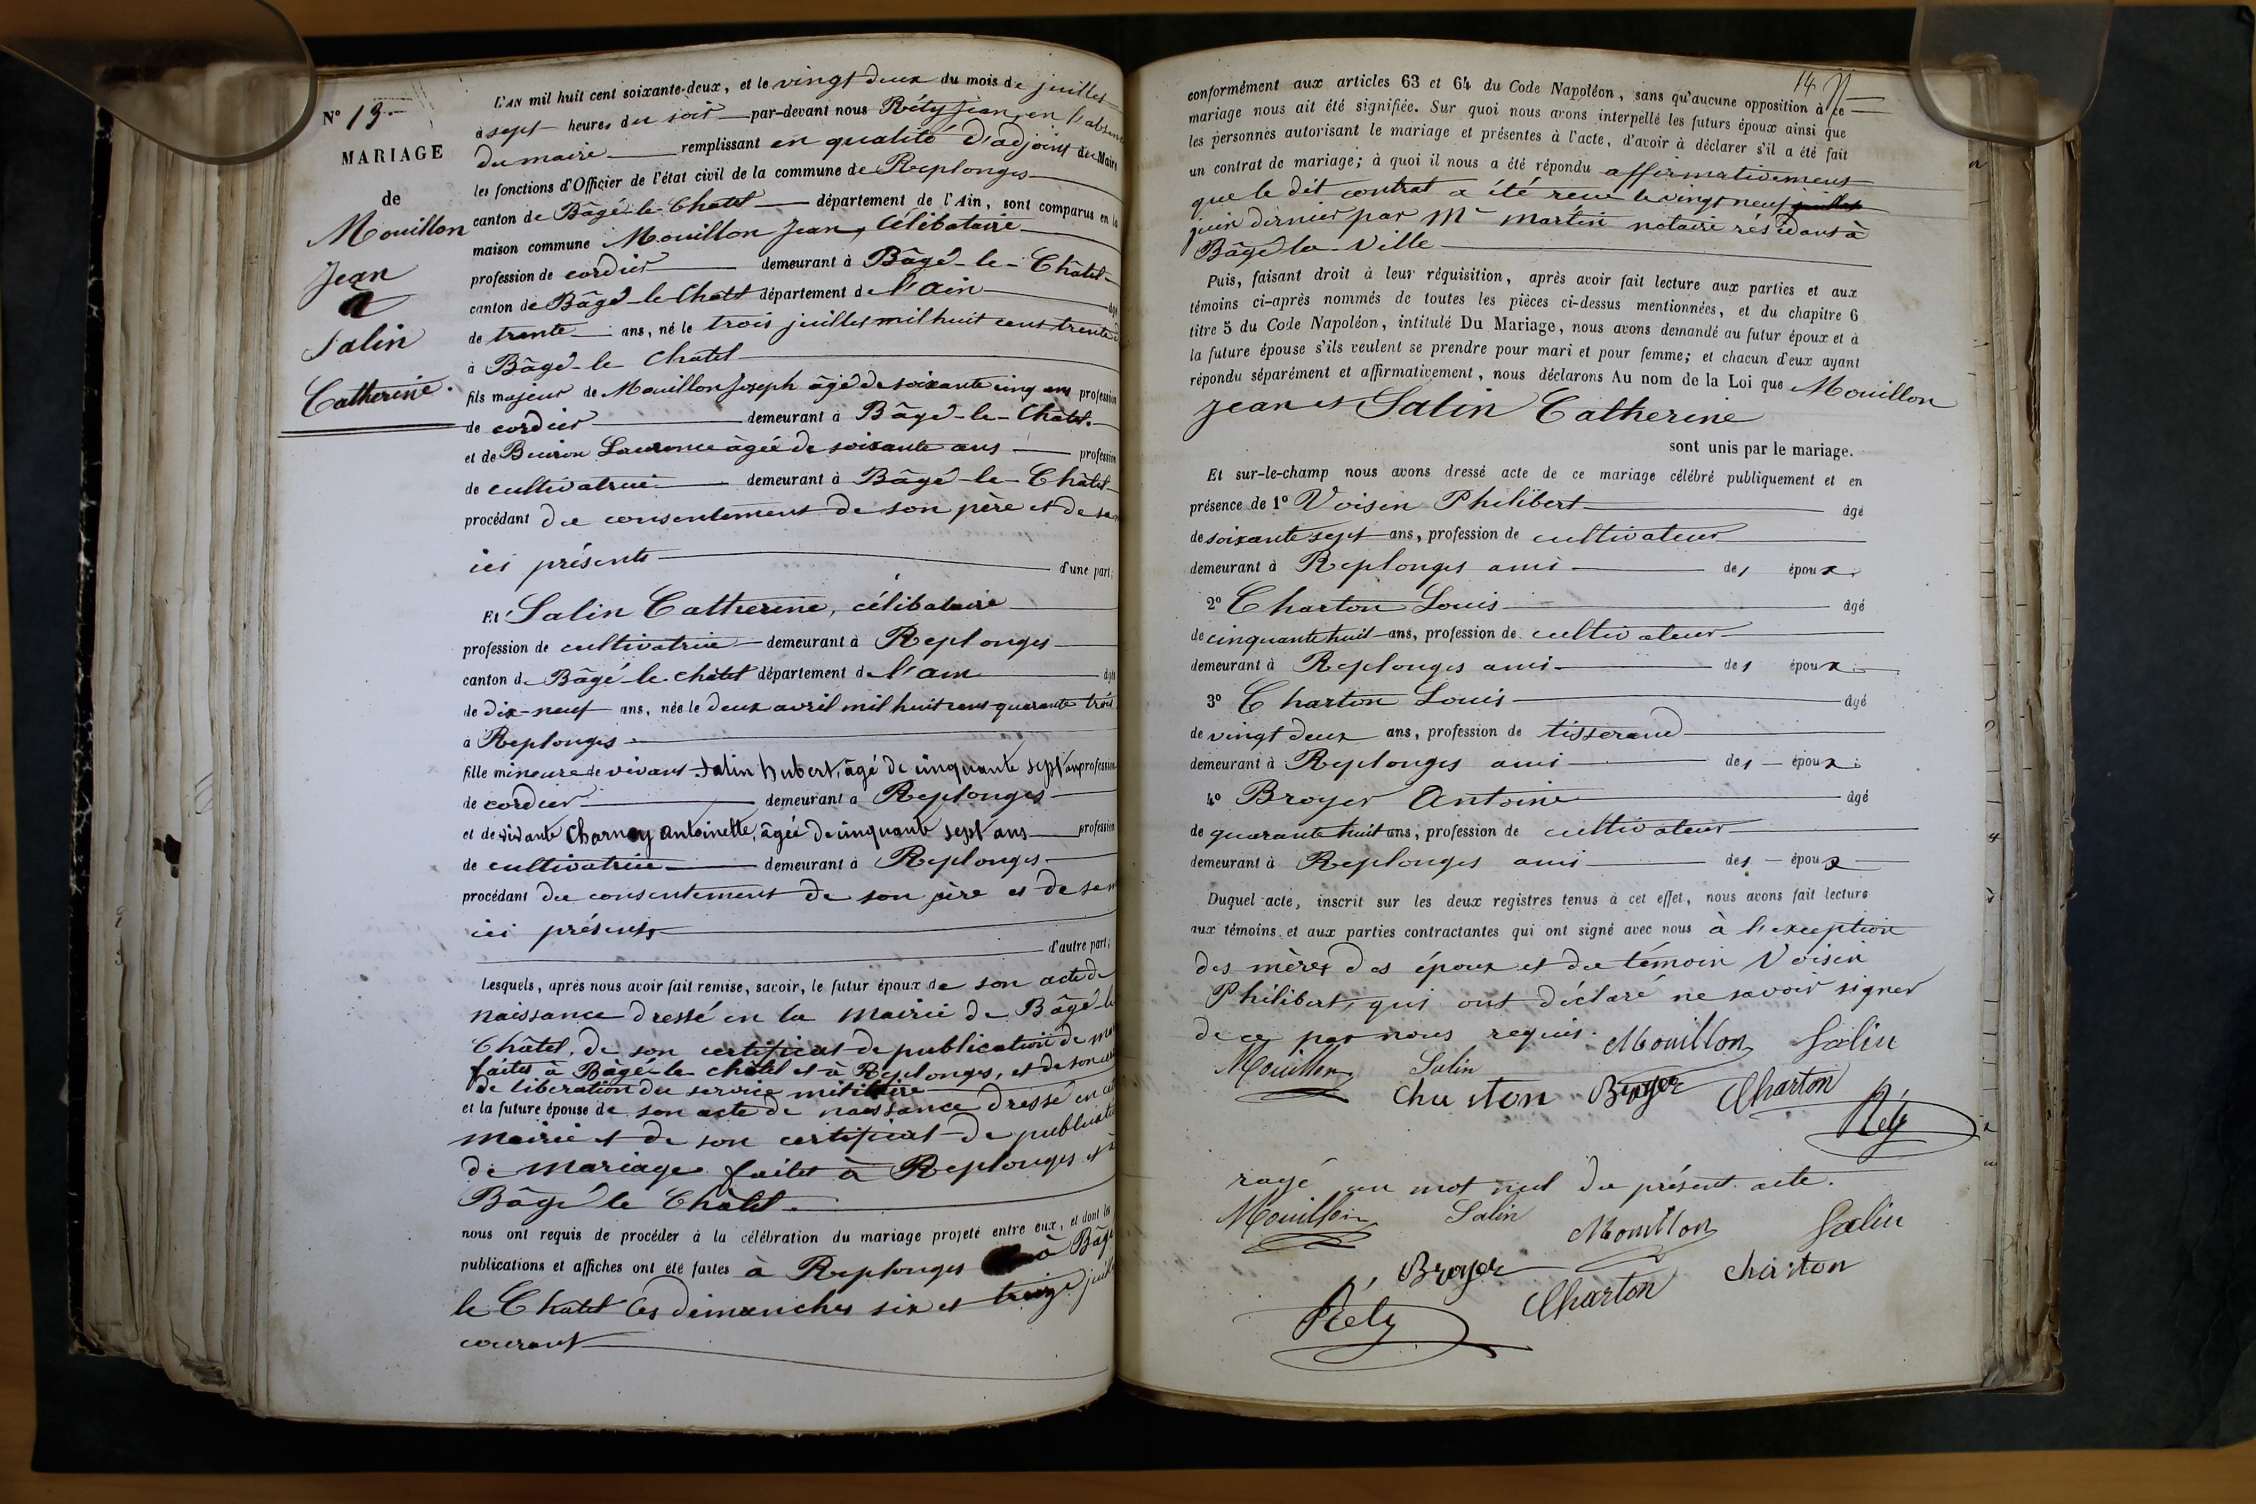 N° 13.
MARIAGE
de
Mouillon
Jean
&
Salin
Catherine.
L'AN mil huit cent soixante-deux, et le vingt deux du mois de juillet
à sept heures du soir par-devant nous Réty Jean, en l'absence
du maire remplissant en qualité d'adjoint de Maire
les fonctions d'Officier de l'état civil de la commune de Replonges
canton de Bâgé-le-Chatel département de l'Ain, sont comparus en la
maison commune Mouillon Jean, célibataire
profession de cordier demeurant à Bâgé-le-Châtel
canton de Bâgé-le-Chatel département de l'Ain âgé
de trente ans, né le trois juillet mil huit cent trente
à Bâgé-le Chatel
fils majeur de Mouillon Joseph âgé de soixante cinq ans profession
de cordier demeurant à Bâgé-le-Châtel.
et de Laurence âgée de soixante ans profession
de cultivatrice demeurant à Bâgé-le-Châtel
procédant du consentement de son père et de sa
ici présents d'une part;
Et Salin Catherine, célibataire
profession de cultivatrice demeurant à Replonges
canton de Bâgé-le-châtel département de l'ain âgée
de dix-neuf ans, née le deux avril mil huit cent quarante trois
à Replonges
fille mineure de vivant Salin hubert, âgé de cinquante sept ans profession
de cordier demeurant à Replonges
et de vivante Charnay antoinette, âgée de cinquante sept ans profession
de cultivatrice demeurant à Replonges
procédant du consentement de son père et de sa m
ici présents
d'autre part;
Lesquels, après nous avoir fait remise, savoir, le futur époux de son acte de
naissance dressé en la mairie de Bâgé-le
Châtel, de son certificat de publication de ma
faites à Bâgé-le châtel et à Replonges, et de son
de libération du service militaire
et la future épouse de son acte de naissance dressé en ce
mairie et de son certificat de publicat
de mariage faites à Replonges et à
Bâgé le Châtel.
nous ont requis de procéder à la célébration du mariage projeté entre eux, et dont les
publications et affiches ont été faites à Replonges à Bâgé
le Châtel les dimanches six et treize juill
courant
14
conformément aux articles 63 et 64 du Code Napoléon, sans qu'aucune opposition à ce
mariage nous ait été signifiée. Sur quoi nous avons interpellé les futurs époux ainsi que
les personnes autorisant le mariage et présentes à l'acte, d'avoir à déclarer s'il a été fait
un contrat de mariage; à quoi il nous a été répondu affirmativement
que le dit contrat a été reçu le vingt neuf juillet
juin dernier par Me Martin notaire résidant à
Bâgé la-Ville
Puis, faisant droit à leur réquisition, après avoir fait lecture aux parties et aux
témoins ci-après nommés de toutes les pièces ci-dessus mentionnées, et du chapitre 6
titre 5 du Code Napoléon, intitulé Du Mariage, nous avons demandé au futur époux et à
la future épouse s'ils veulent se prendre pour mari et pour femme; et chacun d'eux ayant
répondu séparément et affirmativement, nous déclarons Au nom de la Loi que Mouillon
Jean et Salin Catherine
sont unis par le mariage.
Et sur-le-champ nous avons dressé acte de ce mariage célébré publiquement et en
présence de 1° Voisin Philibert âgé
de soixante sept ans, profession de cultivateur
demeurant à Replonges ami des époux
2° Charton Louis âgé
de cinquante huit ans, profession de cultivateur
demeurant à Replonges ami des époux
3° Charton Louis âgé
de vingt deux ans, profession de tisserand
demeurant à Replonges ami des époux
4° Broyer Antoine âgé
de quarante huit ans, profession de cultivateur
demeurant à Replonges ami des époux
Duquel acte, inscrit sur les deux registres tenus à cet effet, nous avons fait lecture
aux témoins et aux parties contractantes qui ont signé avec nous à l'exception
des mères des époux et du témoin Voisin
Philibert, qui ont déclaré ne savoir signer
de ce par nous requis. Mouillon Salin
Mouillon Salin
Charton Broyer Charton
Réty
rayé un mot nul du présent acte.
Mouillon Salin Mouillon Salin
Broyer Charton Charton
Réty